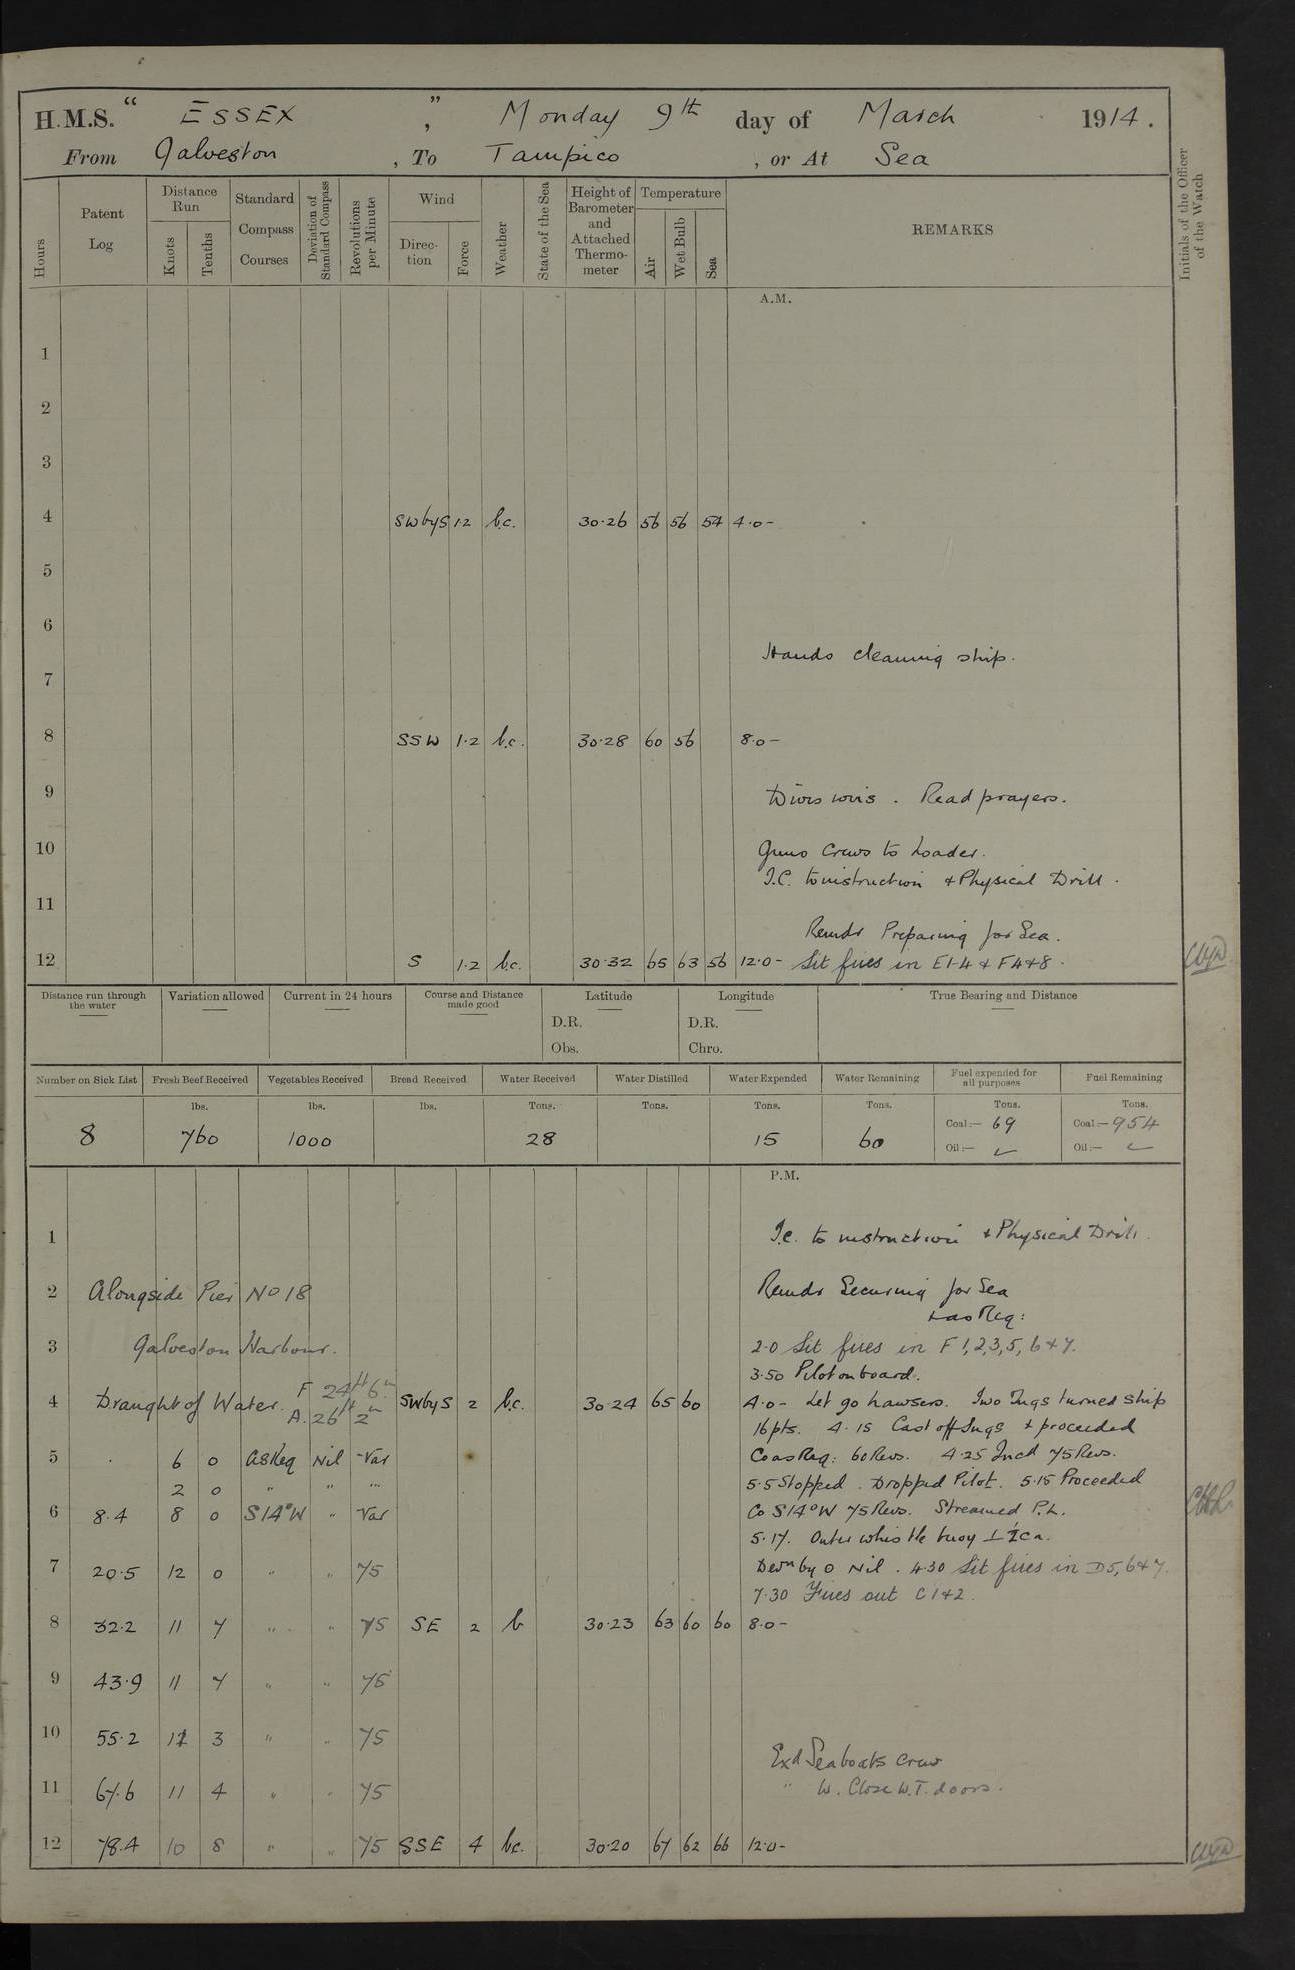 H.M.S. " ESSEX ", Monday 9th day of March 1914.
From Galveston, To Tampico, or At Sea
Hours
Patent Log
Distance Run
Knots
Tenths
Standard Compass Courses
Deviation of Standard Compass
Revolutions per Minute
Wind
Direction
Force
Weather
State of the Sea
Height of Barometer and Attached Thermometer
Temperature
Air
Wet Bulb
Sea
REMARKS
Initials of the Officer of the Watch
A.M.
1
2
3
4 SWbyS 1·2 b.c. 30·26 56 56 54 4·0-
5
6
Hands cleaning ship.
7
8 SSW 1·2 b.c. 30·28 60 56 8·0-
9 Divisions. Read prayers.
10 Guns Crews to Loader.
I.C. to instruction & Physical Drill.
11
Remdr Preparing for Sea.
12 S 1·2 b.c. 30·32 65 63 56 12·0- Lit fires in E1-4 & F4&8.
Distance run through the water
Variation allowed
Current in 24 hours
Course and Distance made good
Latitude
D.R.
Obs.
Longitude
D.R.
Chro.
True Bearing and Distance
Number on Sick List
Fresh Beef Received
Vegetables Received
Bread Received
Water Received
Water Distilled
Water Expended
Water Remaining
Fuel expended for all purposes
Fuel Remaining
lbs. lbs. lbs. Tons. Tons. Tons. Tons. Tons. Tons.
8 760 1000 28 15 60 Coal:— 69 Coal:— 954
Oil:— Oil:—
P.M.
1 I.C. to instruction & Physical Drill.
2 Alongside Pier No 18 Remdr Securing for Sea
& as Req:
3 Galveston Harbour. 2·0 Lit fires in F 1,2,3,5,6&7.
3·50 Pilot on board.
4 Draught of Water. F 24ft 6in A. 26ft 2in SWbyS 2 b.c. 30·24 65 60 4·0- Let go hawsers. Two Tugs turned ship
16pts. 4·15 Cast off Tugs & proceeded
5 6 0 As Req Nil Var Co as Req: 60 Revs. 4·25 Incd 75 Revs.
2 0 " " " 5·5 Stopped. Dropped Pilot. 5·15 Proceeded
6 8.4 8 0 S14°W " Var Co S14°W 75 Revs. Streamed P.L.
5·17. Outer whistle buoy ⊥ 1/2 Ca.
7 20·5 12 0 " " 75 Devn by O Nil. 4·30 Lit fires in D5,6&7.
7·30 Fires out C1&2.
8 32·2 11 7 " " 75 SE 2 b 30·23 63 60 60 8·0-
9 43·9 11 7 " " 75
10 55·2 11 3 " " 75
Exd Seaboats crew
11 67.6 11 4 " " 75 " W. Close W.T. doors.
12 78.4 10 8 " " 75 SSE 4 bc. 30·20 67 62 66 12·0-